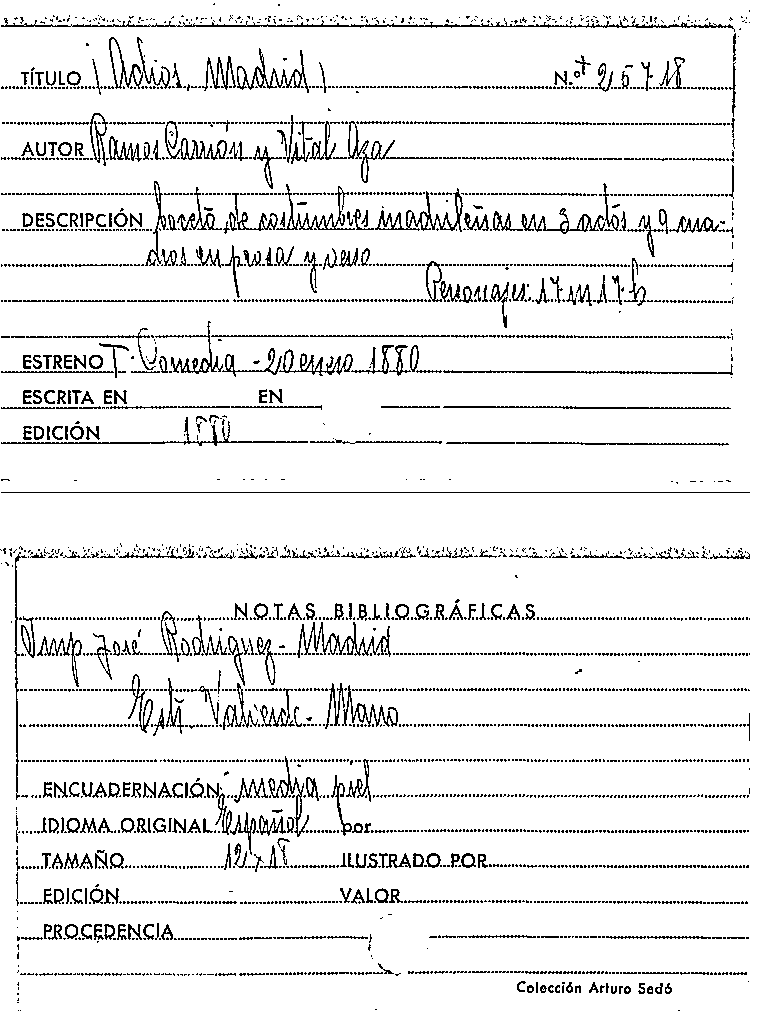 TÍTULO ¡Adios, Madrid! N.º 25718
AUTOR Ramos Carrión y Vital Aza
DESCRIPCIÓN boceto de costumbres madrileñas en 3 actos y 9 cua-
dros en prosa y verso
Personajes: 17 m 17 h
ESTRENO T. Comedia - 20 enero 1880
ESCRITA EN EN
EDICIÓN 1880
NOTAS BIBLIOGRÁFICAS
Imp José Rodriguez - Madrid
Valverde - Mario
ENCUADERNACIÓN media piel
IDIOMA ORIGINAL Español por
TAMAÑO 12 x 18 ILUSTRADO POR
EDICIÓN - VALOR
PROCEDENCIA
Colección Arturo Sedó